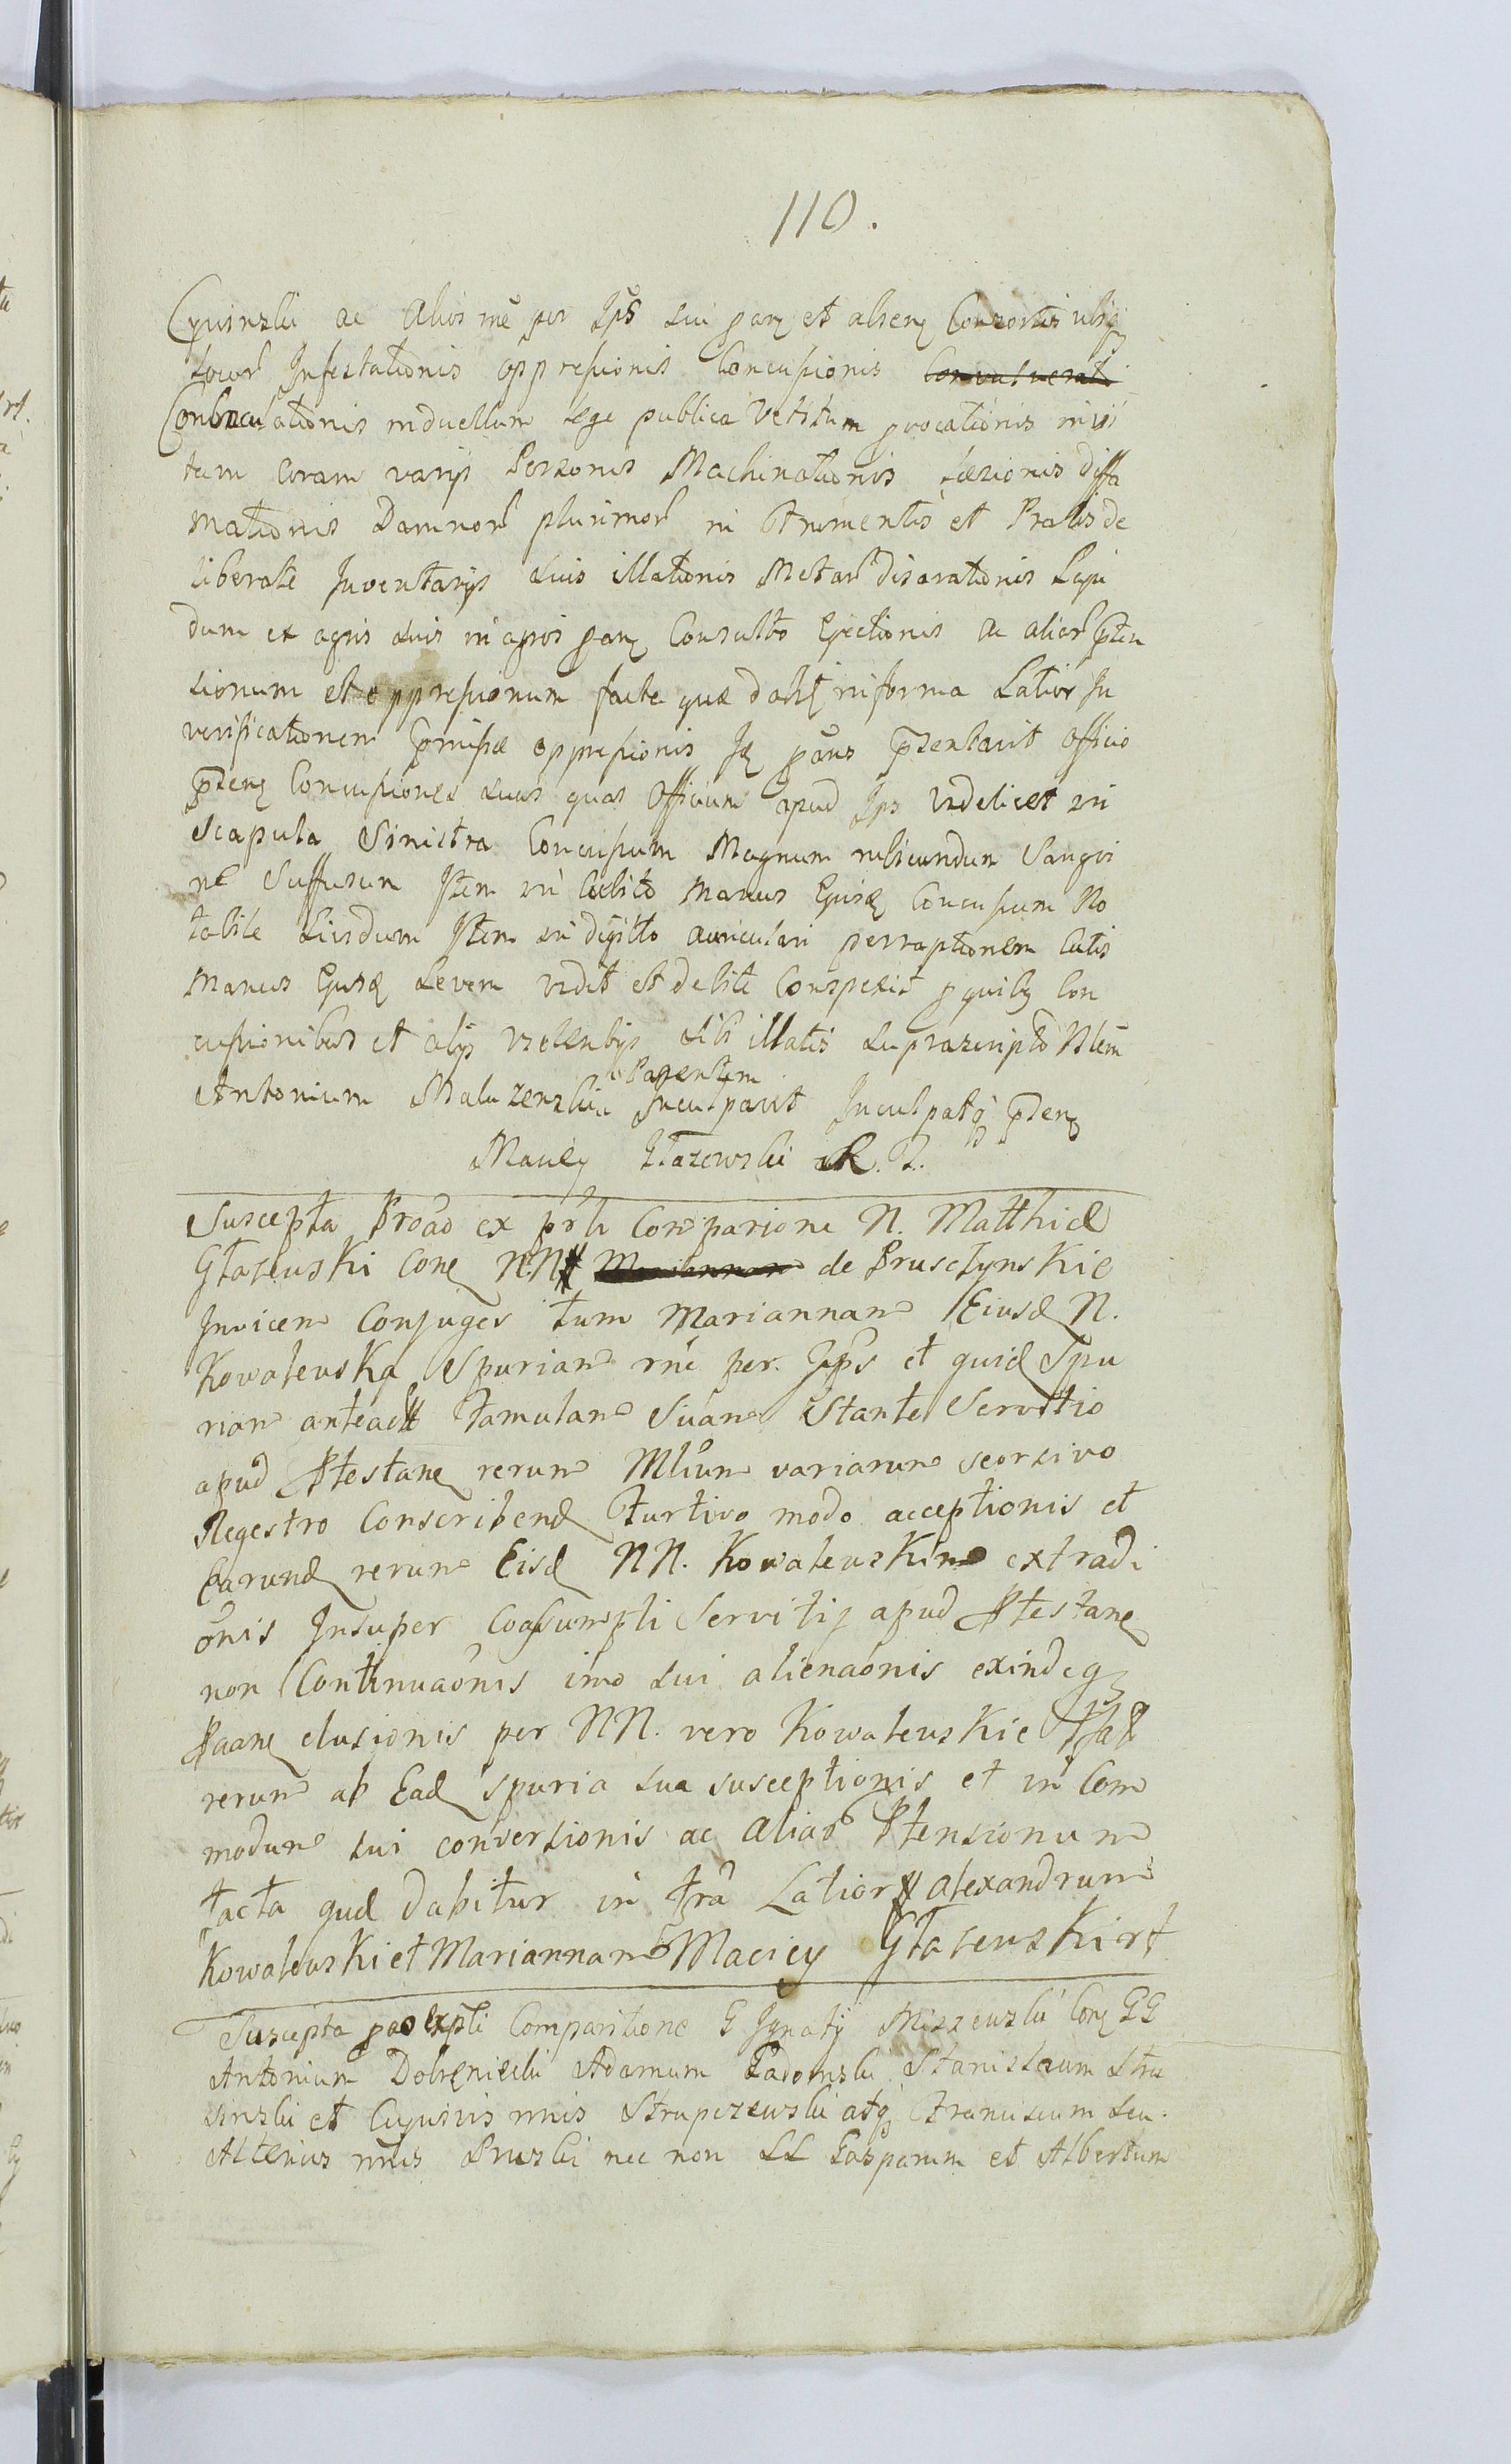 110.
Cywinskii ac alios mē per Ips sui ꝑng et alsenꝫ Consortis ubiqꝫ
locor Infestationis oppressionis Concussionis
Conbaculationis in duellum lege publica Vetitum ꝓvocationis in vi
tam coram varijs Personis Machinationis Læsionis diffa
mationis Damnor plurimor in frumentis et Pratis de
liberate Inventarijs suis illationis Metar disarationis Lapi
dum ex agris suis in agros Consulto Ejectionis ac alior pten
sionum et oppressionum facta quæ dabit in forma Latior In
verificationem p̄missæ oppressionis p̄sentavit officio
p̄senꝫ Concussiones suas quas Officium apud Ips videlicet in
scapula Sinistra Concussum Magnum rubicundum Sangvi
ne Suffusum Item in Cubito manus Ejusꝫ Concussum No
tabile Lividum Item in digitto auriculari perraptionem Cutis
manus Ejusꝫ Levem vidit et debite Conspexit ꝑ quibꝫ Con
cussionibus et alijs violentijs sibi illatis supra scripto Nlem
Patentem
Antonium Maluzenskii Inculpavit Inculpatqꝫ p̄senꝫ
Maciey Głazewski R. P.
Suscepta Proāo ex pārti Comparione N. Matthiæ
Głazewski cong N.N. de Prusctynskie
Invicem Conjuges tum Mariannam Eiusd N.
Kowalewska Spuriam rne per. Ips et quid Spu
riam anteact famulam Suam Stante Servitio
apud Ptestang rerum Mlium variarum seorsivo
Regestro Conscribend furtivo modo acceptionis et
Earund rerum Eisd NN. Kowalewskim extradi
ōnis Insuper Coassumpti Servitij apud Ptestang
non Continuaōnis imo sui alienaōnis exindeqꝫ
Paang elusionis per NN. vero Kowalewskie Pfat
rerum ab Ead spuria sua susceptionis et in Com
modum sui conversionis ac aliar Ptensionum
facta quæ dabitur in frā Latior Alexandrum
Kowalewski et Mariannam Maciey Głazewski rt
Suscepta ꝓao expti Comparitione G Ignatij Miszewskii Cong GG
Antonium Dobrzeniecki Adamum Gadomski Stanislaum Stru
sinski et Cujusvis nnis Strupczewski atqꝫ Franciscum seu
Alterius nnis Pruski nec non LL Gasparum et Albertum